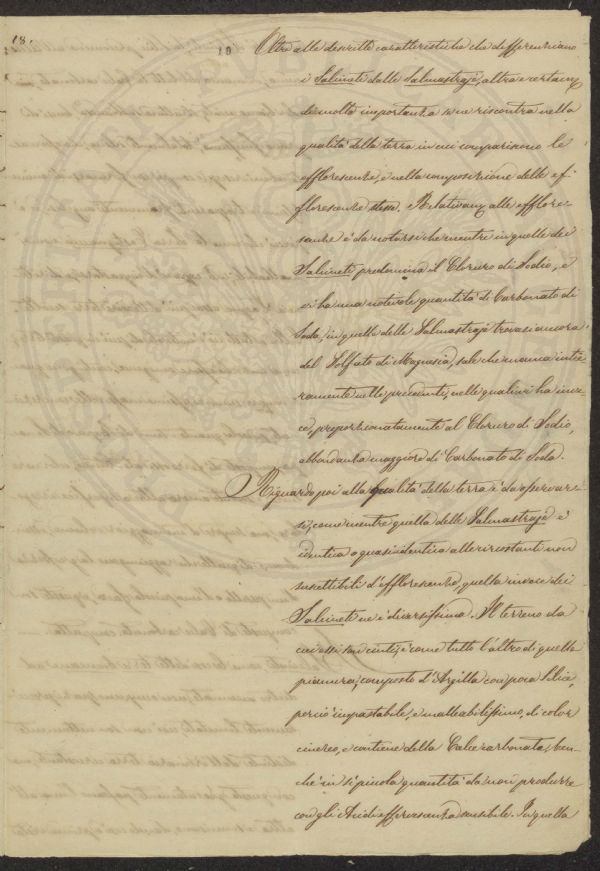 18.
10 Oltre alle descritte caratteristiche che differenziano
i Salineti dalle Salmastraje, altra certam.
di molta importanza se ne riscontra nella
qualità della terra in cui compariscono le
efflorescenze, e nella composizione delle ef-
florescenze stesse. Relativam. alle efflore-
scenze è da notarsi che mentre in quelle dei
Salineti predomina il Cloruro di Sodio, e
vi ha una notevole quantità di Carbonato di
Soda, in quelle delle Salmastraje trovasi ancora
del Solfato di Magnesia, sale che manca intie-
ramente nelle precedenti, nelle quali vi ha inve-
ce, proporzionatamente al Cloruro di Sodio,
abbondanza maggiore di Carbonato di Soda.
Riguardo poi alla qualità della terra è da osservar-
si, come mentre quella delle Salmastraje è
identica o quasi identica alle circostanti non
suscettibili d'efflorescenze, quella invece dei
Salineti ne è diversissima. Il terreno da
cui essi son cinti, è come tutto l'altro di quella
pianura, composto d'Argilla con poca Silice,
perciò impastabile, e malleabilissimo, di color
cinereo, e contiene della Calce carbonata, ben-
chè in sì piccola quantità da non produrre
con gli Acidi effervescenza sensibile. In quella